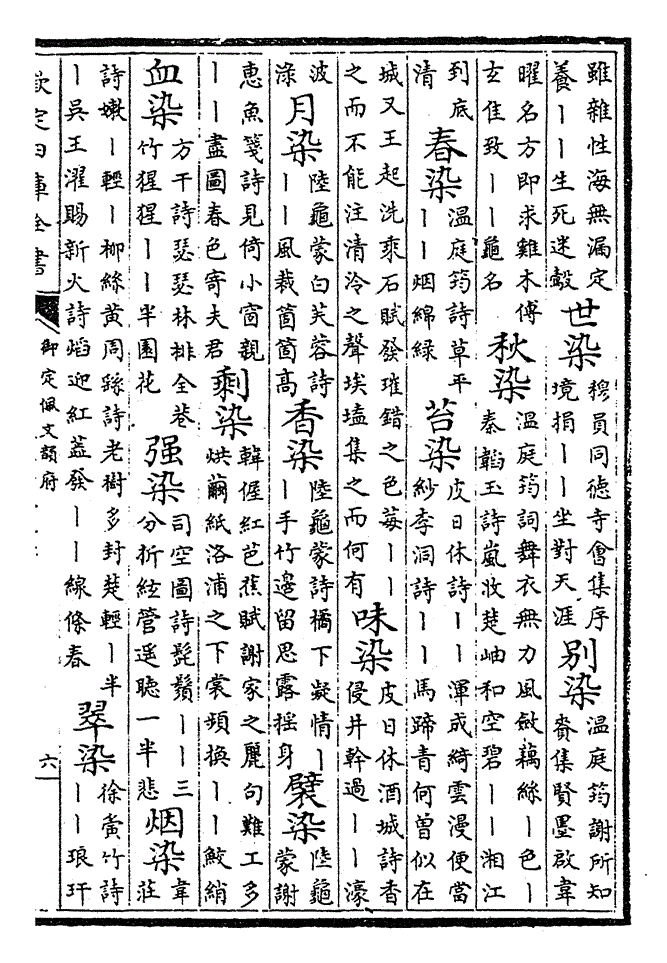 雖雜性海無漏定
養丨丨生死迷㲉
世染
穆員同徳寺會集序
境捐丨丨坐對天涯
别染
温庭筠謝所知
賚集賢墨啟韋
曜名方即求難木傅
玄佳致丨丨龜名
秋染
温庭筠詞舞衣無力風斂藕絲丨色丨
秦韜玉詩嵐收楚岫和空碧丨丨湘江
到底
清
春染
温庭筠詩草平
丨丨烟綿緑
苔染
皮日休詩丨丨渾成綺雲漫便當
紗李洞詩丨丨馬蹄青何曾似在
城又王起洗乘石賦發璀錯之色莓丨丨
之而不能注清泠之聲埃壒集之而何有
味染
皮日休酒城詩香
侵井幹過丨丨濠
波
渌
月染
陸龜蒙白芙蓉詩
丨丨風裁箇箇高
香染
陸龜蒙詩橘下凝情丨
丨手竹邊留思露摇身
襞染
陸龜
蒙謝
恵魚箋詩見倚小窗親
丨丨盡圖春色寄夫君
剩染
韓偓紅芭蕉賦謝家之麗句難工多
烘繭紙洛浦之下裳頻換丨丨鮫綃
血染
方干詩瑟瑟林排全巷
竹猩猩丨丨半園花
强染
司空圖詩髭鬚丨丨三
分折絃管遥聽一半悲
烟染
韋
莊
詩嫩丨輕丨柳絲黄周繇詩老樹多封楚輕丨半
丨吳王濯賜新火詩焰迎紅蓋發丨丨線條春
翠染
徐夤竹詩
丨丨琅玕
欽定四庫全書
御定佩文韻府
六